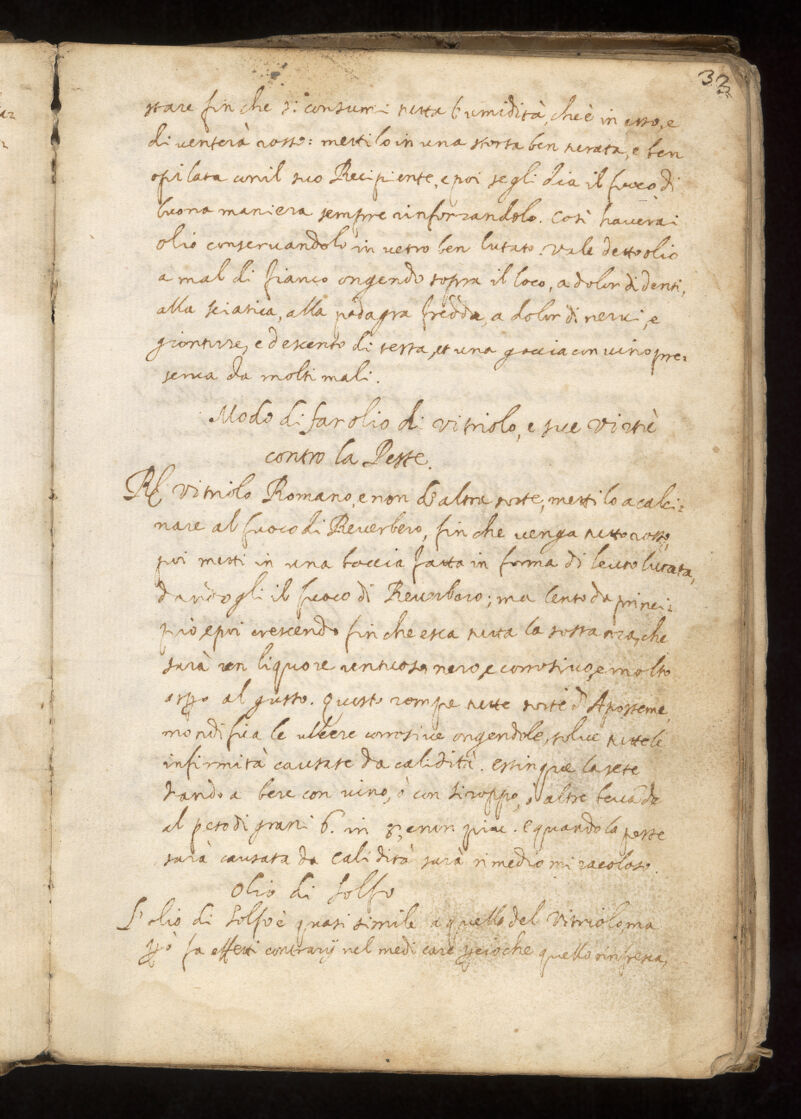 33
stare fin che si consumi tutta l'umidità, che è in esso, e
diventerà rosso: mettilo in una storta ben serrata, e ben
opilata con il suo Recipiente, e poi se gli dia il fuoco di
buona maniera sempre rinforzandolo. Così haverai
olio conservandolo in vetro ben lutato. Vale detto olio
a mal di fianco ongendo sopra il loco, a dolor di denti,
alla sciatica, alla podagra fredda, a dolor di nervi, e
gionture, e descenso di testa, et una goccia con vino pre:
serva da molti mali.
Modo di far olio di vitriolo, e sue virtù
contro la Peste.
R vitriolo Romano, e non d'altra sorte, mettilo a calci:
nare al fuoco di Reverbero, fin che venga tutto rosso,
poi metti in una boccia fatta in forma di leuto lutata,
dandogli il fuoco di Reverbero; ma lento da princi:
pio, e poi crescendo fin che esca tutta la sostanza, che
sarà un liquore untuoso nero, e corrosivo, e molto
aspro al gusto. Questo rompe tutte sorte d'Aposteme,
mondifica le ulcere corrosive ongendole, solve tutte le
infirmità causate da calidità. Estingue la sete
dando a bere con vino, ò con siroppo, ò altre bevãde
al peso di grani 6. in 8, e non piu. E quando la peste
sarà causata da calidità sarà rimedio miracoloso.
Olio di Solfo
L'olio di Solfo è quasi simile a quello del Vitriolo ma
però fa effetti contrarij nel medicare perciòche quello rinfresca,